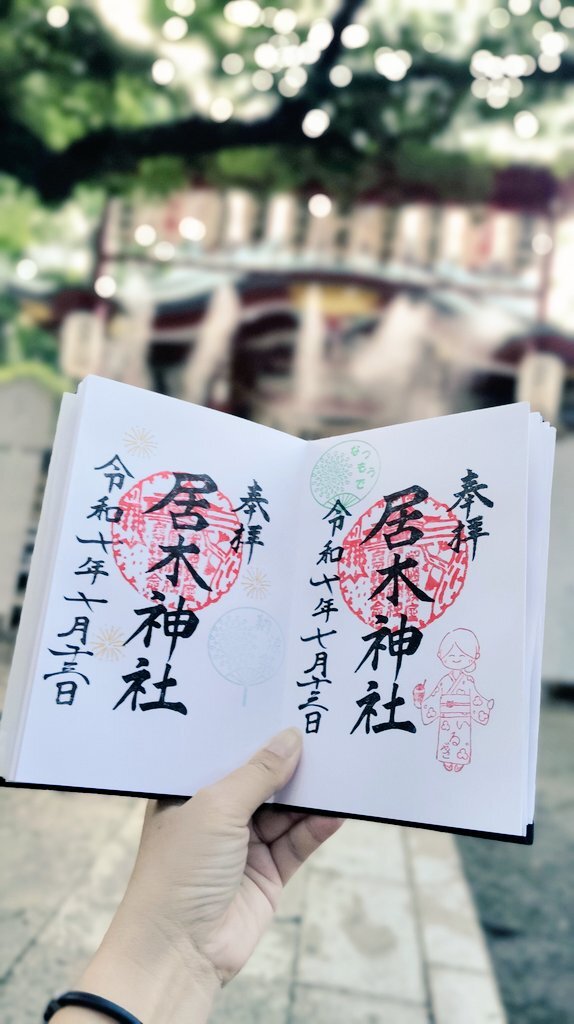 奉拝
居木神社
令和七年七月十三日
なつもうで
いるぎ
奉拝
居木神社
令和七年七月十三日